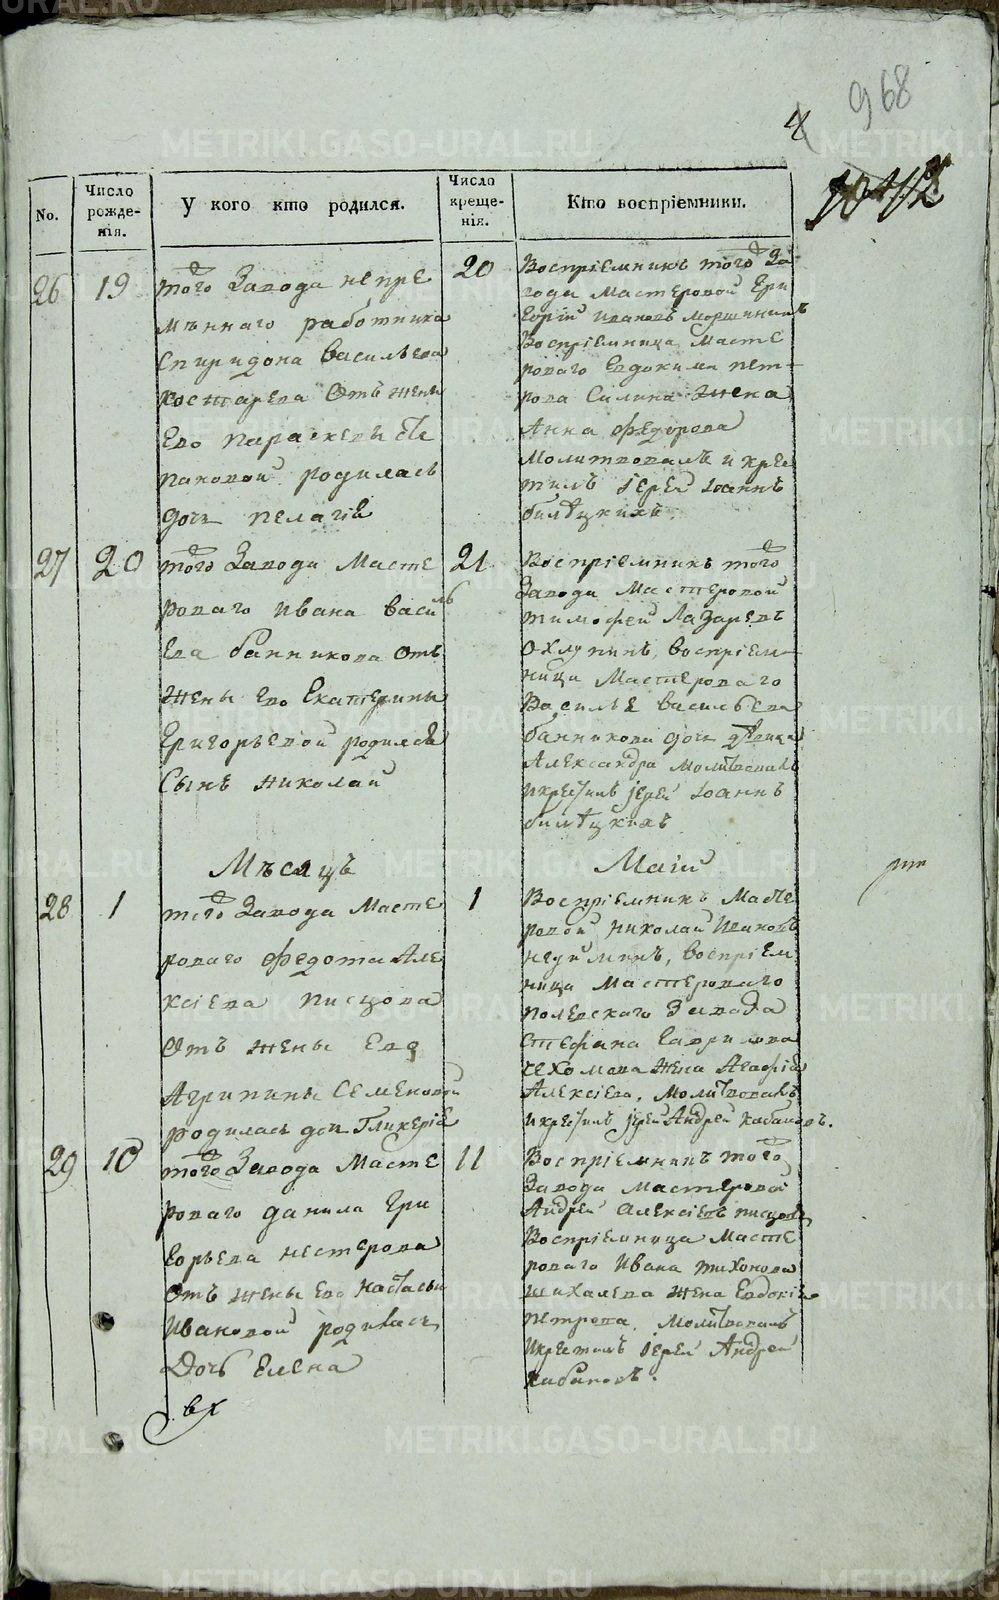 968
4
No.
Число рожде-нія.
У кого кто родился.
Число креще-нія.
Кто воспріемники.
26
19
того Завода непре
мѣннаго работника
Спиридона Васильева
Костарева Отъ жены
Ево Параскевы Сте
пановой родилась
дочь Пелагія
20
Воспріемникъ того За
вода Мастеровой Гри
горій Ивановъ Моршининъ
Воспріемница Масте
роваго Евдокима Пет-
рова Силина Жена
Анна Федорова
Молитвовалъ и крес
тилъ Іерей Іоаннъ
27
20
того Завода Масте
роваго Ивана Василь
ева банникова Отъ
Жены Ево Екатерины
Григорьевой родился
Сынъ Николай
21
Воспріемникъ того
Завода Мастеровой
Тимофей Лазаревъ
Охлупинъ, Воспріем-
ница Мастероваго
Василья Васильева
банникова дочь дѣвица
Александра Молитвовалъ
и крестилъ Іерей Іоаннъ
Мѣсяцъ
Маій
28
1
того Завода Масте
роваго Федота Але
ксіева Писцова
Отъ жены Ево
Агрипины Семеновой
родилась дочь Гликерія
1
Воспріемникъ Масте
ровой Николай Ивановъ
воспріем
ница Мастероваго
Полевскаго Завода
Стефана Гаврилова
Чехомова Жена Агафія
Алексіева, Молитвовалъ
и крестилъ Іерей Андрей Кабаковъ.
29
10
того Завода Масте
роваго Данила Гри
горьева Нестерова
Отъ жены Ево Настасьи
Ивановой родилась
Дочь Елена
11
Воспріемникъ того
Завода Мастеровой
Андрей Алексіевъ Писцовъ
Воспріемница Масте
роваго Ивана Тихонова
Шихалева Жена Евдокія
Петрова. Молитвовалъ
и крестилъ Іерей Андрей
Кабаковъ.
METRIKI.GASO-URAL.RU